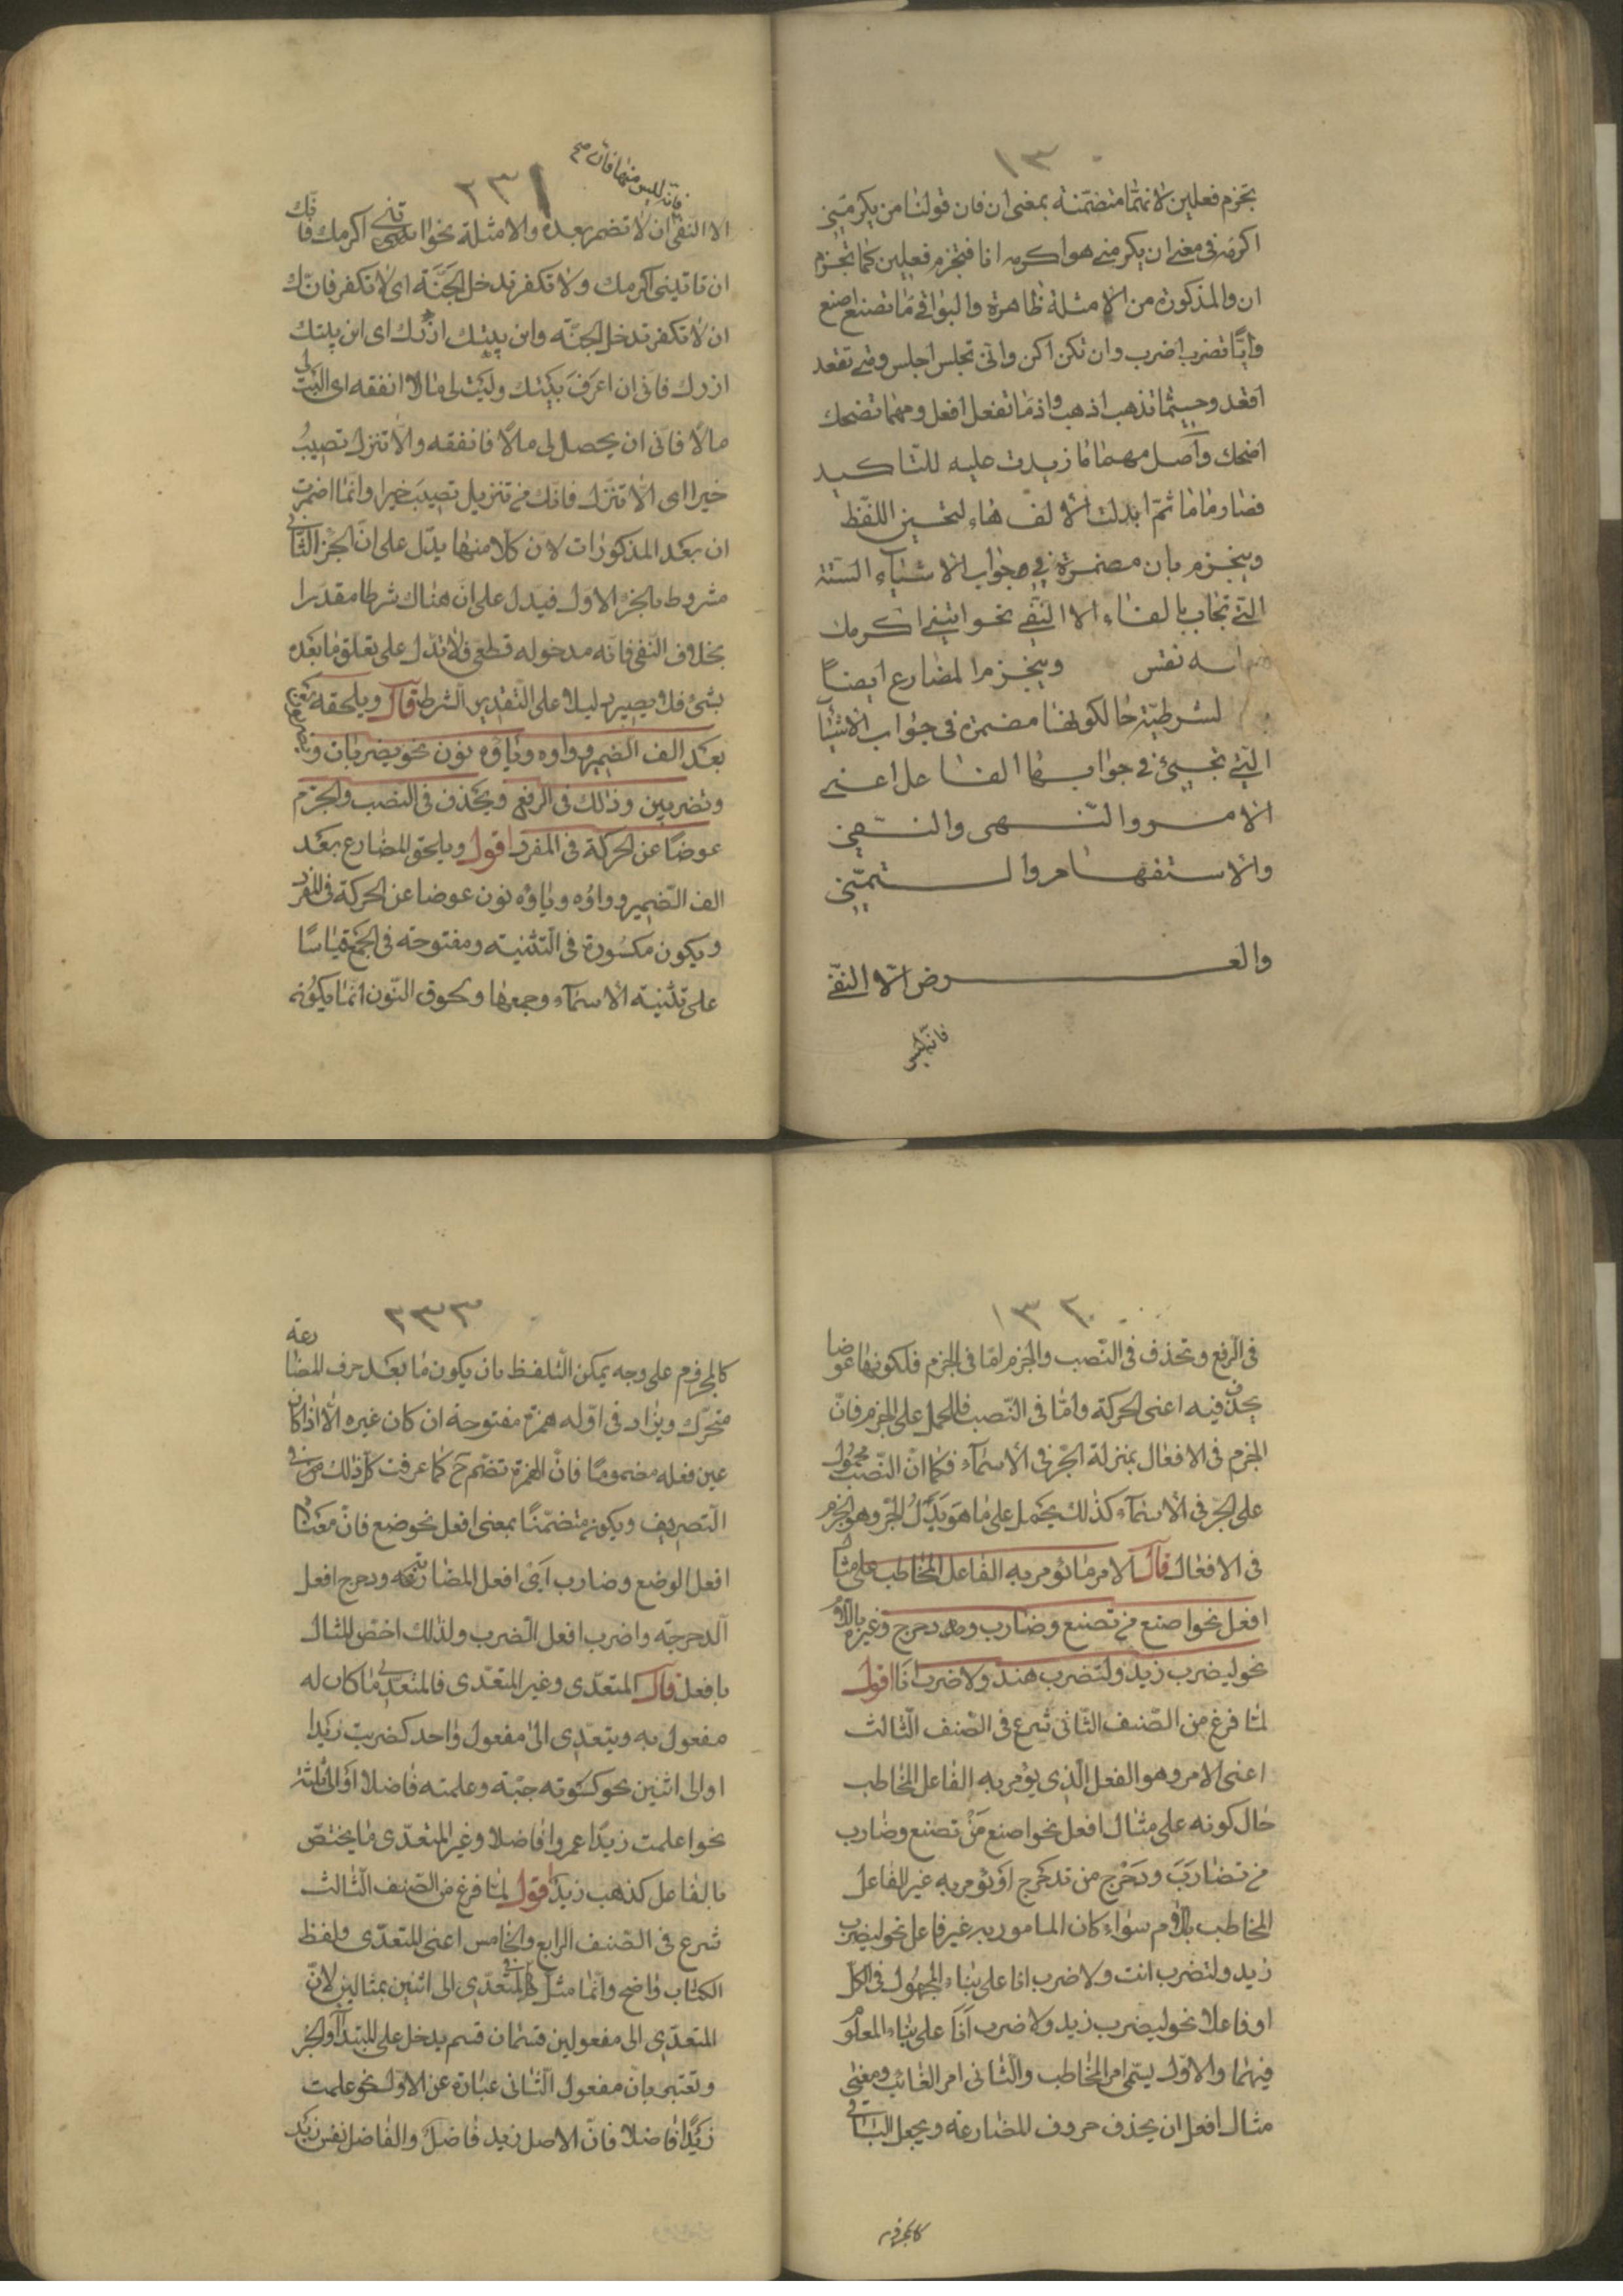 ١٣
تجزم فعلين لانها متضمنة بمعنى ان فان قولنا من يكرمنى
اكرمه فى معنى ان يكرمنى هو اكرمه انا فتجزم فعلين كما تجزم
ان والمذكورة من الامثلة ظاهرة والبواقى ما تصنع اصنع
وايّا تضرب اضرب وان تكن اكن وانّى تجلس اجلس ومتى تقعد
اقعد وحيثما تذهب اذهب واذما تفعل افعل ومهما تضحك
اضحك واصل مهما ما زيدت عليه للتاكيد
فصار ماما ثمّ ابدلت الالف هاء لتحسين اللفظ
وينجزم بان مضمرة فى جواب الاشياء الستة
التى تجاب بالفاء الا النفى نحو ايتنى اكرمك
وينجزم المضارع ايضًا
لشرطيّة حالكونها مضمرة فى جواب الاشيا
التى تجيئ فى جوابها الفاء اعنى
الامر والنّهى والنفى
والاستفهام والتمنّى
والعرض الّا النفى
فانه ليس
٢٣١
فانّه ليس منها فان صح
الا النفى ان لا تضمر بعده والامثلة نحو ايتنى اكرمك فانّك
ان تاتينى اكرمك ولا تكفر تدخل الجَنَّة اى لا تكفر فانّك
ان لا تكفر تدخل الجنّة واين بيتك ازرك اى اين بيتك
ازرك فانى ان اعرَف بَيتك ولَيت لى مالا انفقه اى ليت لى
مالًا فانّى ان يحصل لى مالًا فانفقه والّا تنزل تصيبُ
خيرا اى الّا تنزل فانّك ان تنزل تصِب خيرا وانّما اضمرت
ان بعد المذكورات لان كلّا منها يدّل على انّ الجزء الثانى
مشروط بالجزء الاول فيدل على انّ هناك شرطا مقدرا
بخلاف النفى فانّه مدخوله قطعى فلا تدل على تعلق ما بعده
بشئ فلا يصير دليلا على التقدير الشرط قال ويلحقه
بعد الف الضمير وواوه وياؤه نون نحو يضربان
وتضربين وذلك فى الرفع ويحذف فى النصب والجزم
عوضًا عن الحركة فى المفرد اقول ويلحق المضارع بعد
الف الضمير وواؤه وياؤه نون عوضا عن الحركة فى المفرد
ويكون مكسُورة فى التثنية ومفتوحة فى الجمع قياسًا
على تثنية الاسماء وجمعها ولحوق النّون انّما يكونه
١٣٢
فى الرفع وتحذف فى النّصب والجزم امّا فى الجزم فلكونها عوضا
يحذف فيه اعنى الحركة وامّا فى النّصب فللحمل على الجزم فانّ
الجزم فى الافعال بمنزلة الجرّ فى الاسماء فكما انّ النّصب محمول
على الجرّ فى الاسماء كذلك يحمل على ما هو بَدَلُ الجرّ وهو الجزم
فى الافعال قال الامر ما يؤمر به الفاعل المخاطب على مثال
افعل نحو اصنع من تصنع وضارب ودحرج وغيره باللام
نحو ليضرب زيد ولتضرب هند ولاضرب انَا اقول
لمّا فرغ من الصّنف الثّانى شرع فى الصّنف الثّالث
اعنى الامر وهو الفعل الّذى يؤمر به الفاعل المخاطب
حال كونه على مثال افعل نحو اصنع مَنْ تصنع وضارب
من تضارَبَ ودَحْرِج من تدحرج او يُؤمر به غير الفاعل
المخاطب باللام سواء كان المامور به غير فاعل نحو ليضرب
زيد ولتضرب انت ولاضرب انا على بناء المجهول فى الكلّ
او فاعلا نحو ليضرب زيد ولاضرب اَنَا على بناء المعلوم
فيهما والاوّل يسمّى امر المخاطب والثّانى امر الغائب ومعنى
مثال افعل ان يحذف حروف المضارعة ويجعل الباقى
كالمجزوم
٢٣٣
كالمجزوم على وجه يمكن التلفظ بان يكون ما بعد حرف المضارعة
متحرّك ويزاد فى اوّله همزة مفتوحة ان كان غيره الّا اذا كان
عين فعله مضمومًا فانّ الهمزة تضمّ ح كما عرفت كلّ ذلك من فى
التصريف ويكون متضمّنًا بمعنى افعل نحو ضع فانّ معناه
افعل الوضع وضارب اَىْ افعل المضاربة ودحرج افعل
الدحرجة واضرب افعل الضرب ولذلك اختصّ المثال
بافعل قال المتعدّى وغير المتعدّى فالمتعدّى ما كان له
مفعول به ويتعدّى الى مفعول واحد كضربت زيدا
او الى اثنين نحو كسوته جبّة وعلمته فاضلا او الى ثلثة
نحو اعلمت زيدًا عمروا فاضلا وغير المتعدّى ما يختصّ
بالفاعل كذهب زيد اقول لمّا فرغ من الصّنف الثّالث
شرع فى الصّنف الرابع والخامس اعنى المتعدّى ولفظ
الكتاب واضح وانّما مثل فى المتعدّى الى اثنين بمثالين لانّ
المتعدّى الى مفعولين قسمان قسم يدخل على المبتدأ والخبر
وتعتبر بان مفعول الثّانى عبارة عن الاوّل نحو علمت
زَيدًا فاضلا فانّ الاصل زيد فاضلٌ والفاضل نفس زيد